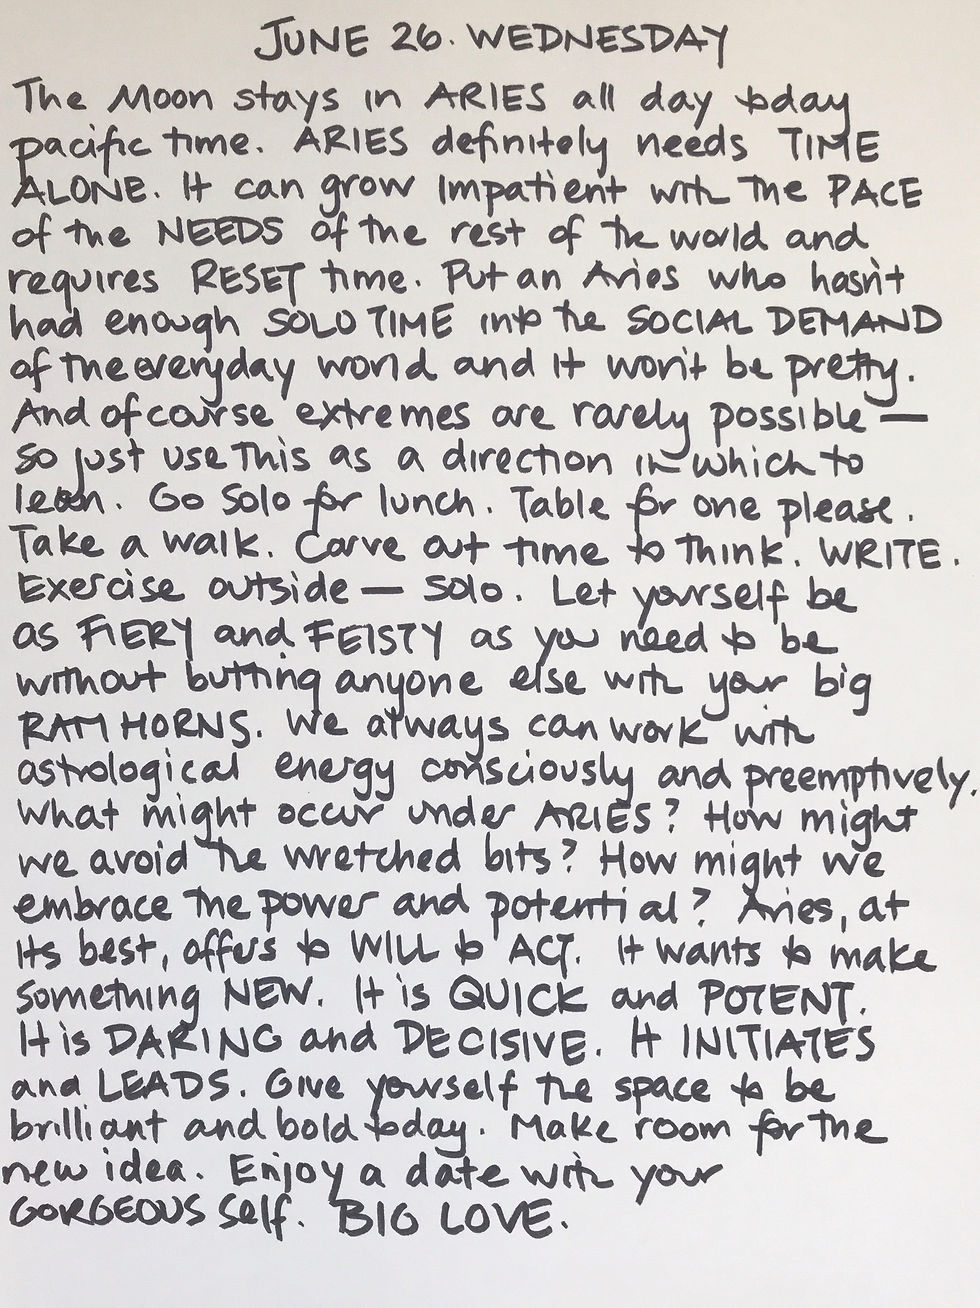 JUNE 26. WEDNESDAY
The Moon stays in ARIES all day today
pacific time. ARIES definitely needs TIME
ALONE. It can grow impatient with the PACE
of the NEEDS of the rest of the world and
requires RESET time. Put an Aries who hasn't
had enough SOLO TIME into the SOCIAL DEMAND
of the everyday world and it won't be pretty.
And of course extremes are rarely possible —
so just use this as a direction in which to
lean. Go solo for lunch. Table for one please.
Take a walk. Carve out time to think. WRITE.
Exercise outside — solo. Let yourself be
as FIERY and FEISTY as you need to be
without butting anyone else with your big
RAM HORNS. We always can work with
astrological energy consciously and preemptively.
What might occur under ARIES? How might
we avoid the wretched bits? How might we
embrace the power and potential? Aries, at
its best, offers to WILL to ACT. It wants to make
something NEW. It is QUICK and POTENT.
It is DARING and DECISIVE. It INITIATES
and LEADS. Give yourself the space to be
brilliant and bold today. Make room for the
new idea. Enjoy a date with your
GORGEOUS self. BIG LOVE.